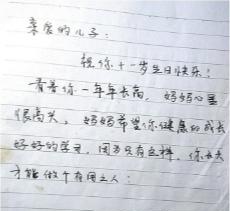 亲爱的儿子：
祝你十一岁生日快乐！
看着你一年年长高，妈妈心里
很高兴，妈妈希望你健康的成长
好好的学习，因为只有这样，你长大
才能做个有用之人；